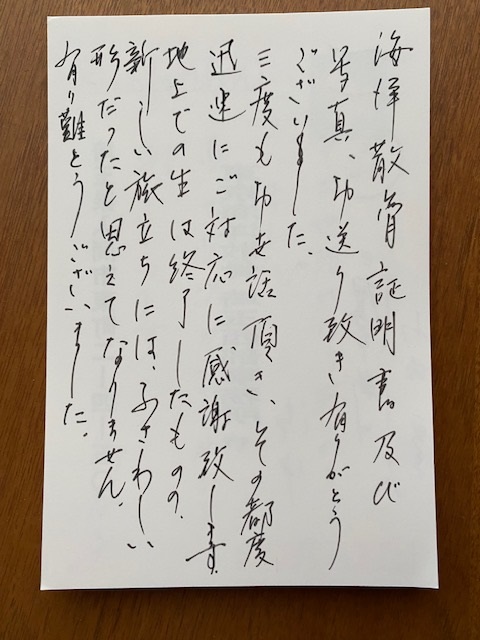 海洋散骨証明書及び
写真、御送り致き有りがとう
ございました、
三度も御世話頂き、その都度
迅速にご対応に、感謝致します。
地上での生は終了したものの、
新しい旅立ちには、ふさわしい
形だったと思えてなりません、
有り難とうございました、